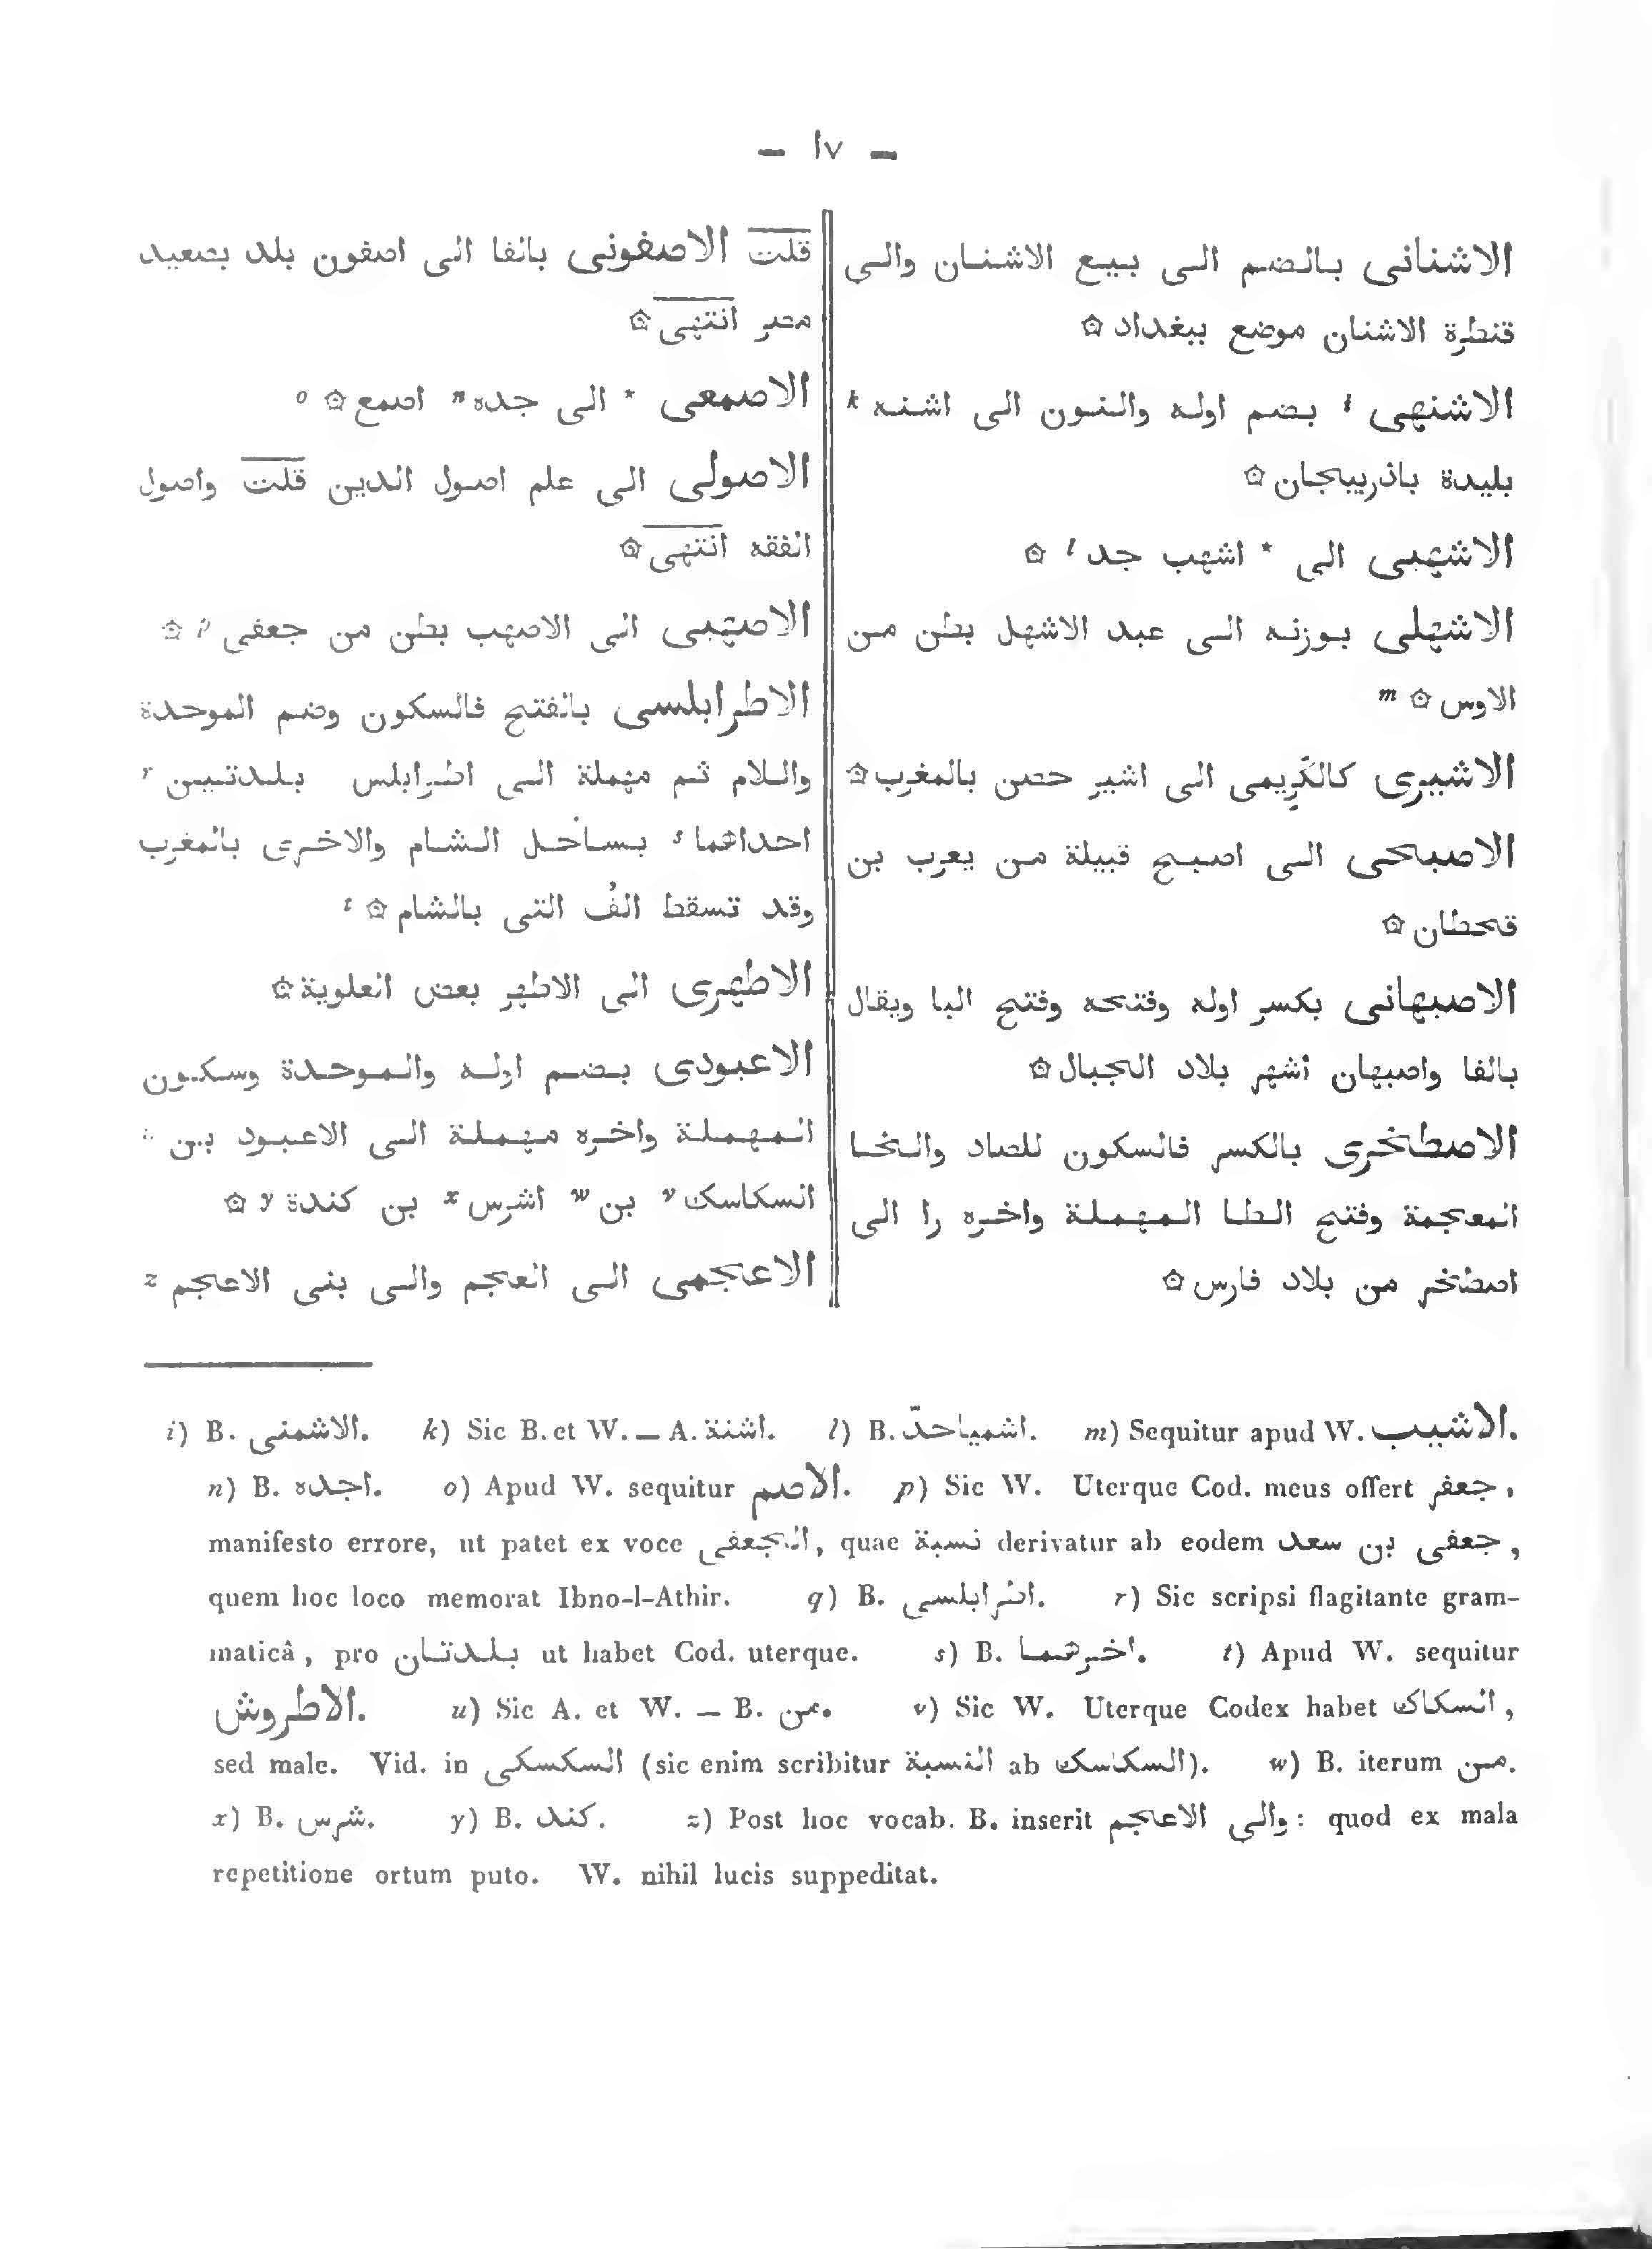 — ١٧ —
الاشنانى بالضم الى بيع الاشنان والى
قنطرة الاشنان موضع ببغداد ۞
الاشنهى i بضم اوله والنون الى اشنه k
بليدة باذربيجان ۞
الاشهبى الى * اشهب جد l ۞
الاشهلى بوزنه الى عبد الاشهل بطن من
الاوس ۞ m
الاشيرى كالكَرِيمى الى اشير حصن بالمغرب ۞
الاصبحى الى اصبح قبيلة من يعرب بن
قحطان ۞
الاصبهانى بكسر اوله وفتحه وفتح البا ويقال
بالفا واصبهان اشهر بلاد الجبال ۞
الاصطخرى بالكسر فالسكون للصاد والخا
المعجمة وفتح الطا المهملة واخره را الى
اصطخر من بلاد فارس ۞
قلت الاصفونى بالفا الى اصفون بلد بصعيد
مصر انتهى ۞
الاصمعى * الى جده n اصمع ۞ o
الاصولى الى علم اصول الدين قلت واصول
الفقه انتهى ۞
الاصهبى الى الاصهب بطن من جعفى p ۞
الاطرابلسى بالفتح فالسكون وضم الموحدة
واللام ثم مهملة الى اطرابلس بلدتين r
احداهما s بساحل الشام والاخرى بالمغرب
وقد تسقط الف التى بالشام ۞ t
الاطهرى الى الاطهر بعض العلوية ۞
الاعبودى بضم اوله والموحدة وسكون
المهملة واخره مهملة الى الاعبود بن u
السكاسك v بن w اشرس x بن كندة y ۞
الاعجمى الى العجم والى بنى الاعجم z
i) B. الاشمنى. k) Sic B. et W. — A. اشنة. l) B. اشمياحدّ. m) Sequitur apud W. الاشيب.
n) B. اجده. o) Apud W. sequitur الاصم. p) Sic W. Uterque Cod. meus offert جعفر,
manifesto errore, ut patet ex voce الجعفى, quae نسبة derivatur ab eodem جعفى بن سعد,
quem hoc loco memorat Ibno-l-Athir. q) B. اطرابلسى. r) Sic scripsi flagitante gram-
maticâ, pro بلدتان ut habet Cod. uterque. s) B. اخرهما. t) Apud W. sequitur
الاطروش. u) Sic A. et W. — B. من. v) Sic W. Uterque Codex habet السكاك,
sed male. Vid. in السكسكى (sic enim scribitur النسبة ab السكاسك). w) B. iterum من.
x) B. شرس. y) B. كند. z) Post hoc vocab. B. inserit والى الاعاجم: quod ex mala
repetitione ortum puto. W. nihil lucis suppeditat.